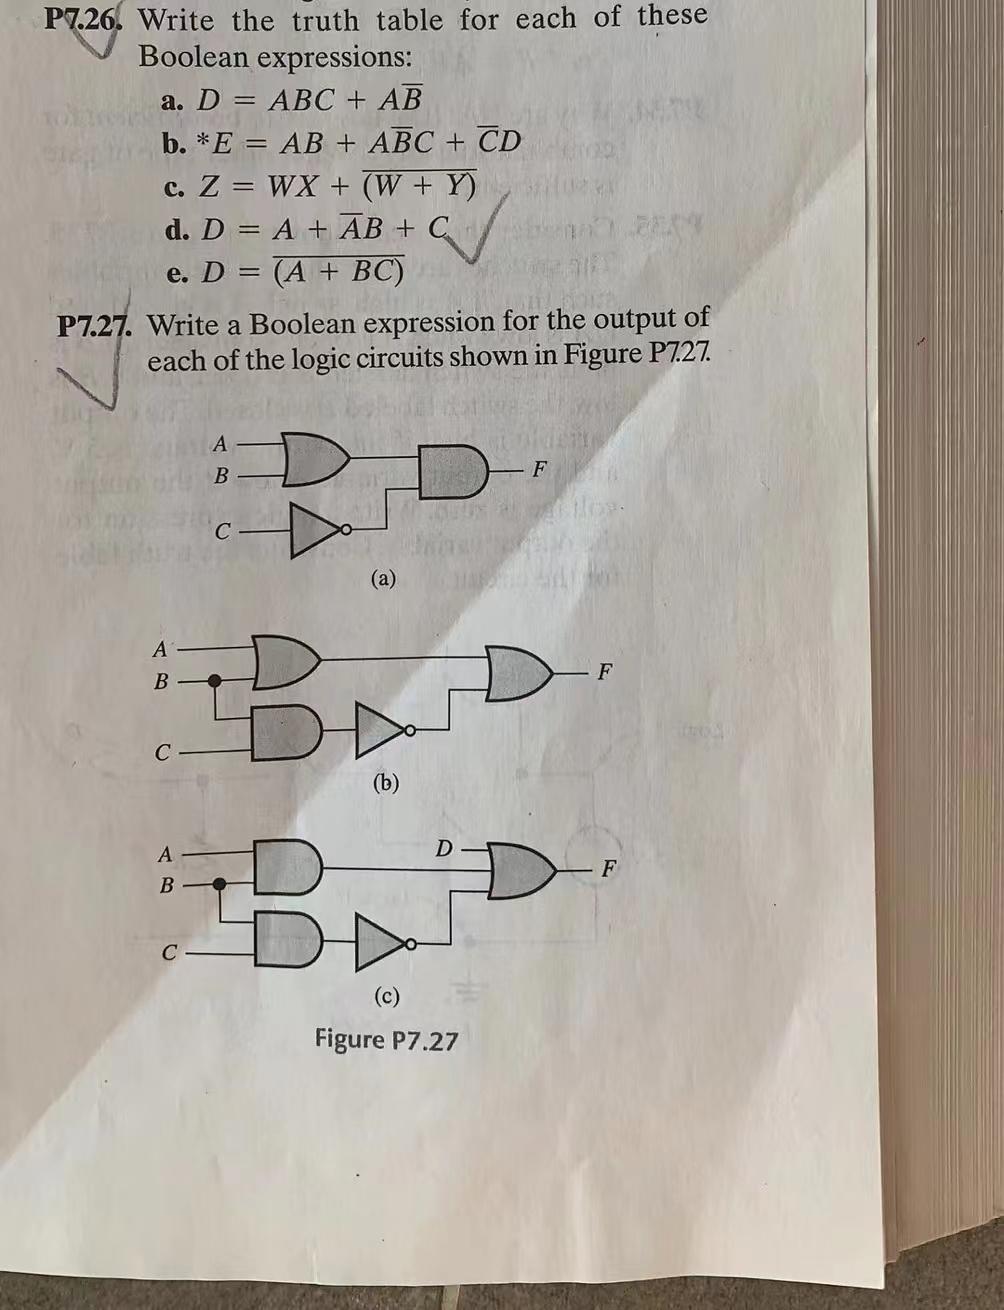 P7.26. Write the truth table for each of these
Boolean expressions:
a. D = ABC + AB̅
b. *E = AB + AB̅C + C̅D
c. Z = WX + \overline{(W + Y)}
d. D = A + A̅B + C
e. D = \overline{(A + BC)}
P7.27. Write a Boolean expression for the output of
each of the logic circuits shown in Figure P7.27.
A
B
F
C
(a)
A
F
B
C
(b)
D
A
F
B
C
(c)
Figure P7.27